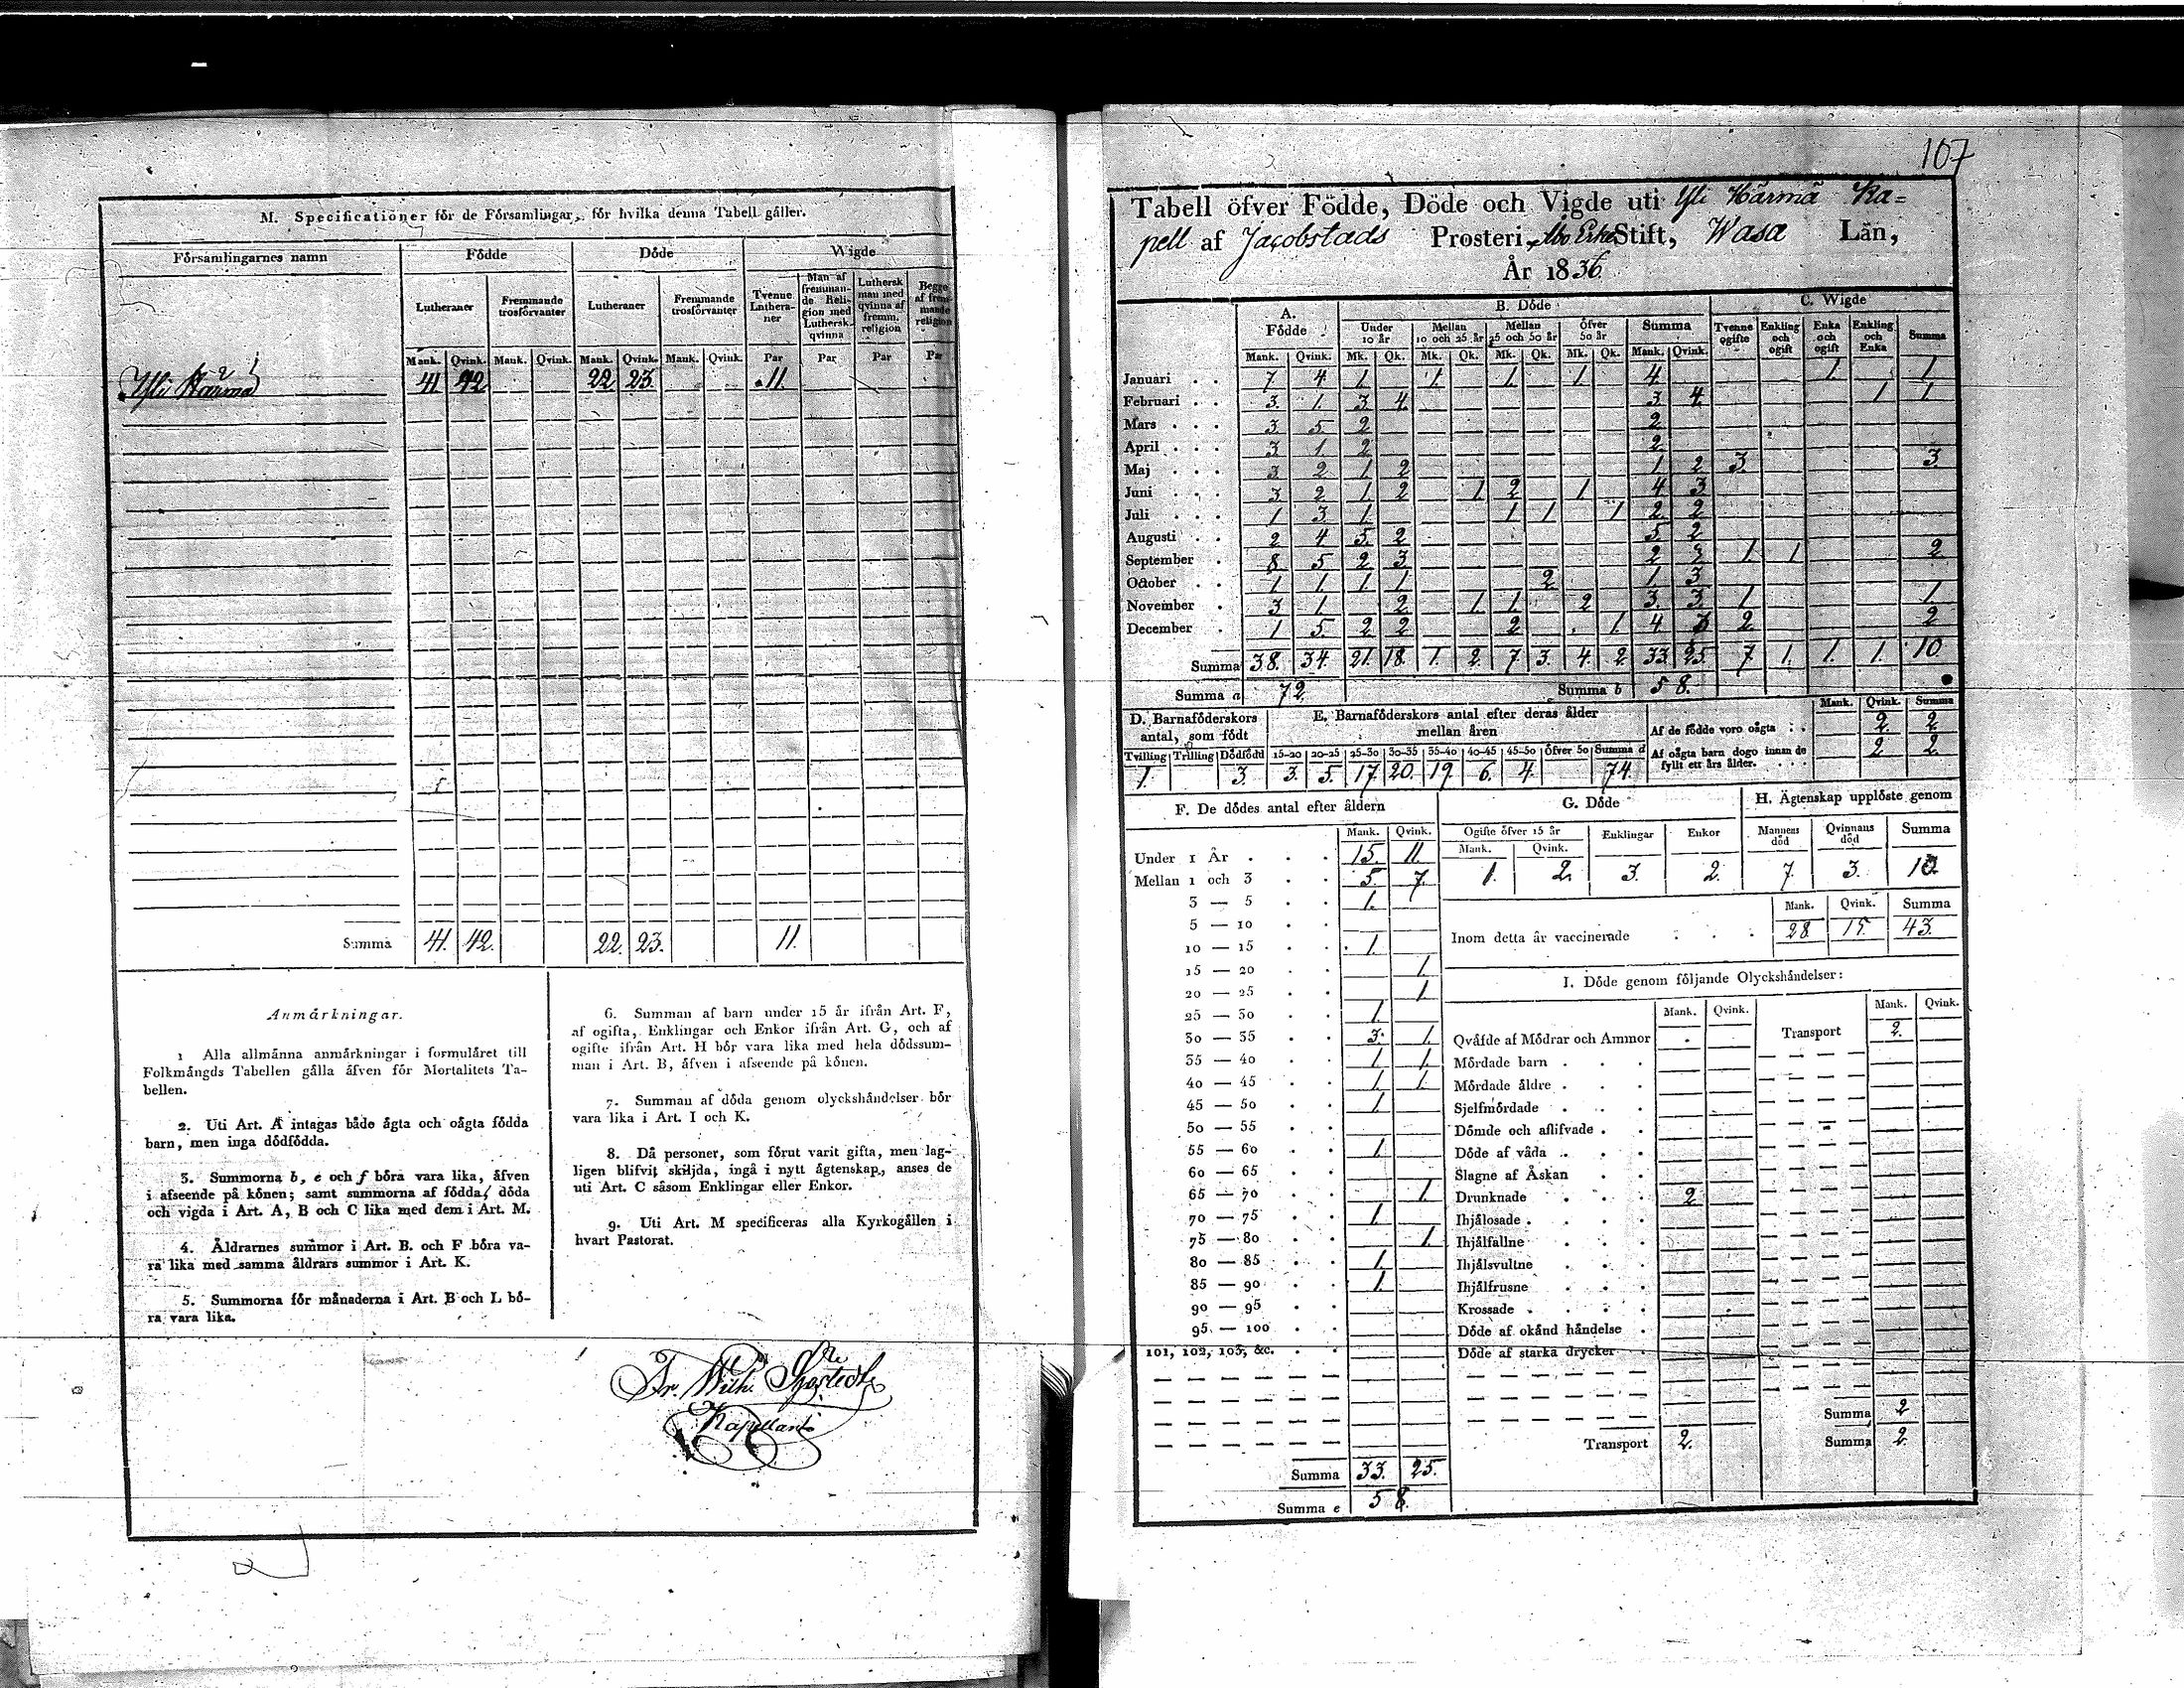 M. Specificationer för de Församlingar, för hvilka denna Tabell gäller.
Församlingarnes namn Födde Döde Wigde
Lutheraner Fremmande trosförvanter Lutheraner Fremmande trosförvanter Tvenne Luthera-ner Man af fremman-de Reli-gion med Luthersk qvinna Luthersk man med qvinna af fremm. religion Begge af frem-mande religion
Mank. Qvink. Mank. Qvink. Mank. Qvink. Mank. Qvink. Par Par Par Par
Yli Härmä 41 42 22 23. 11.
Summa 41. 42. 22. 23. 11.
Anmärkningar.
1 Alla allmänna anmärkningar i formuläret till
Folkmängds Tabellen gälla äfven för Mortalitets Ta-
bellen.
2. Uti Art. A intagas både ägta och oägta födda
barn, men inga dödfödda.
3. Summorna b, e och f böra vara lika, äfven
i afseende på könen; samt summorna af födda, döda
och vigda i Art. A, B och C lika med dem i Art. M.
4. Åldrarnes summor i Art. B. och F böra va-
ra lika med samma åldrars summor i Art. K.
5. Summorna för månaderna i Art. B och L bö-
ra vara lika.
6. Summan af barn under 15 år ifrån Art. F,
af ogifta, Enklingar och Enkor ifrån Art. G, och af
ogifte ifrån Art. H bör vara lika med hela dödssum-
man i Art. B, äfven i afseende på könen.
7. Summan af döda genom olyckshändelser bör
vara lika i Art. I och K.
8. Då personer, som förut varit gifta, men lag-
ligen blifvit skiljda, ingå i nytt ägtenskap, anses de
uti Art. C såsom Enklingar eller Enkor.
9. Uti Art. M specificeras alla Kyrkogällen i
hvart Pastorat.
Kapellan
107
Tabell öfver Födde, Döde och Vigde uti Yli Härmä Ka=
pell af Jacobstads Prosteri, Åbo Erke Stift, Wasa Län,
År 1836.
A. Födde B. Döde C. Wigde
Under 10 år Mellan 10 och 25 år Mellan 25 och 50 år Öfver 50 år Summa Tvenne ogifte Enkling och ogift Enka och ogift Enkling och Enka Summa
Mank. Qvink. Mk. Qk. Mk. Qk. Mk. Qk. Mk. Qk. Mank. Qvink.
Januari 7 4 1. 1. 1. 1. 4. 1. 1
Februari 3. 1. 3. 4. 3. 4. 1 1
Mars 3 5 2 2
April 3 1 2 2
Maj 3 2 1 2 1 2 3. 3.
Juni 3 2 1 2 1. 2 1. 4 3
Juli 1 3 1. 1 1 1 2 2
Augusti 2 4 5. 2 5 2
September 8 5 2 3 2 3 1. 1 2
October 1 1 1. 1 2 1. 3
November 3 1 2 1. 1. 2 3. 3. 1 1
December 1 5 2 2 2 1. 4. 3 2 2
Summa 38. 34. 21. 18. 1. 2. 7. 3. 4. 2. 33. 25. 7 1. 1. 1. 10
Summa a 72. Summa b 58.
D. Barnaföderskors antal, som födt
Tvilling Trilling Dödfödd
1. 3.
E. Barnaföderskors antal efter deras ålder mellan åren
15-20 20-25 25-30 30-35 35-40 40-45 45-50 Öfver 50 Summa d
3. 5. 17. 20. 19. 6. 4. 74.
Mank. Qvink. Summa
Af de födde voro oägta 2. 2
Af oägta barn dogo innan de fyllt ett års ålder. 2 2.
F. De dödes antal efter åldern
Mank. Qvink.
Under 1 År 15. 11.
Mellan 1 och 3 5. 7.
3 — 5 1.
5 — 10
10 — 15 1.
15 — 20 1.
20 — 25 1
25 — 30 1.
30 — 35 3. 1.
35 — 40 1. 1.
40 — 45 1. 1.
45 — 50 1.
50 — 55
55 — 60 1.
60 — 65
65 — 70 1.
70 — 75 1.
75 — 80 1.
80 — 85 1.
85 — 90 1.
90 — 95
95. — 100
101, 102, 103, &c.
Summa 33. 25.
Summa e 58.
G. Döde
Ogifte öfver 15 år Enklingar Enkor
Mank. Qvink.
1. 2. 3. 2.
H. Ägtenskap upplöste genom
Mannens död Qvinnans död Summa
7. 3. 10
Mank. Qvink. Summa
Inom detta år vaccinerade 28 15. 43.
I. Döde genom följande Olyckshändelser:
Mank. Qvink. Mank. Qvink.
Qväfde af Mödrar och Ammor Transport 2.
Mördade barn
Mördade äldre
Sjelfmördade
Dömde och aflifvade
Döde af våda
Slagne af Åskan
Drunknade 2
Ihjälosade
Ihjälfallne
Ihjälsvultne
Ihjälfrusne
Krossade
Döde af okänd händelse
Döde af starka drycker
Summa 2
Transport 2. Summa 2.